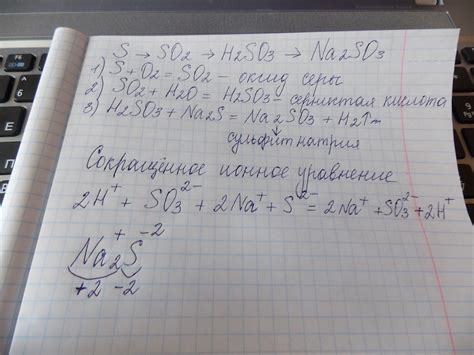 S → SO2 → H2SO3 → Na2SO3
1) S + O2 = SO2 – оксид серы
2) SO2 + H2O = H2SO3 – сернистая кислота
3) H2SO3 + Na2S = Na2SO3 + H2↑
сульфит натрия
Сокращённое ионное уравнение
2H⁺ + SO3²⁻ + 2Na⁺ + S²⁻ = 2Na⁺ + SO3²⁻ + 2H⁺
+ -2
Na2S
+2 -2